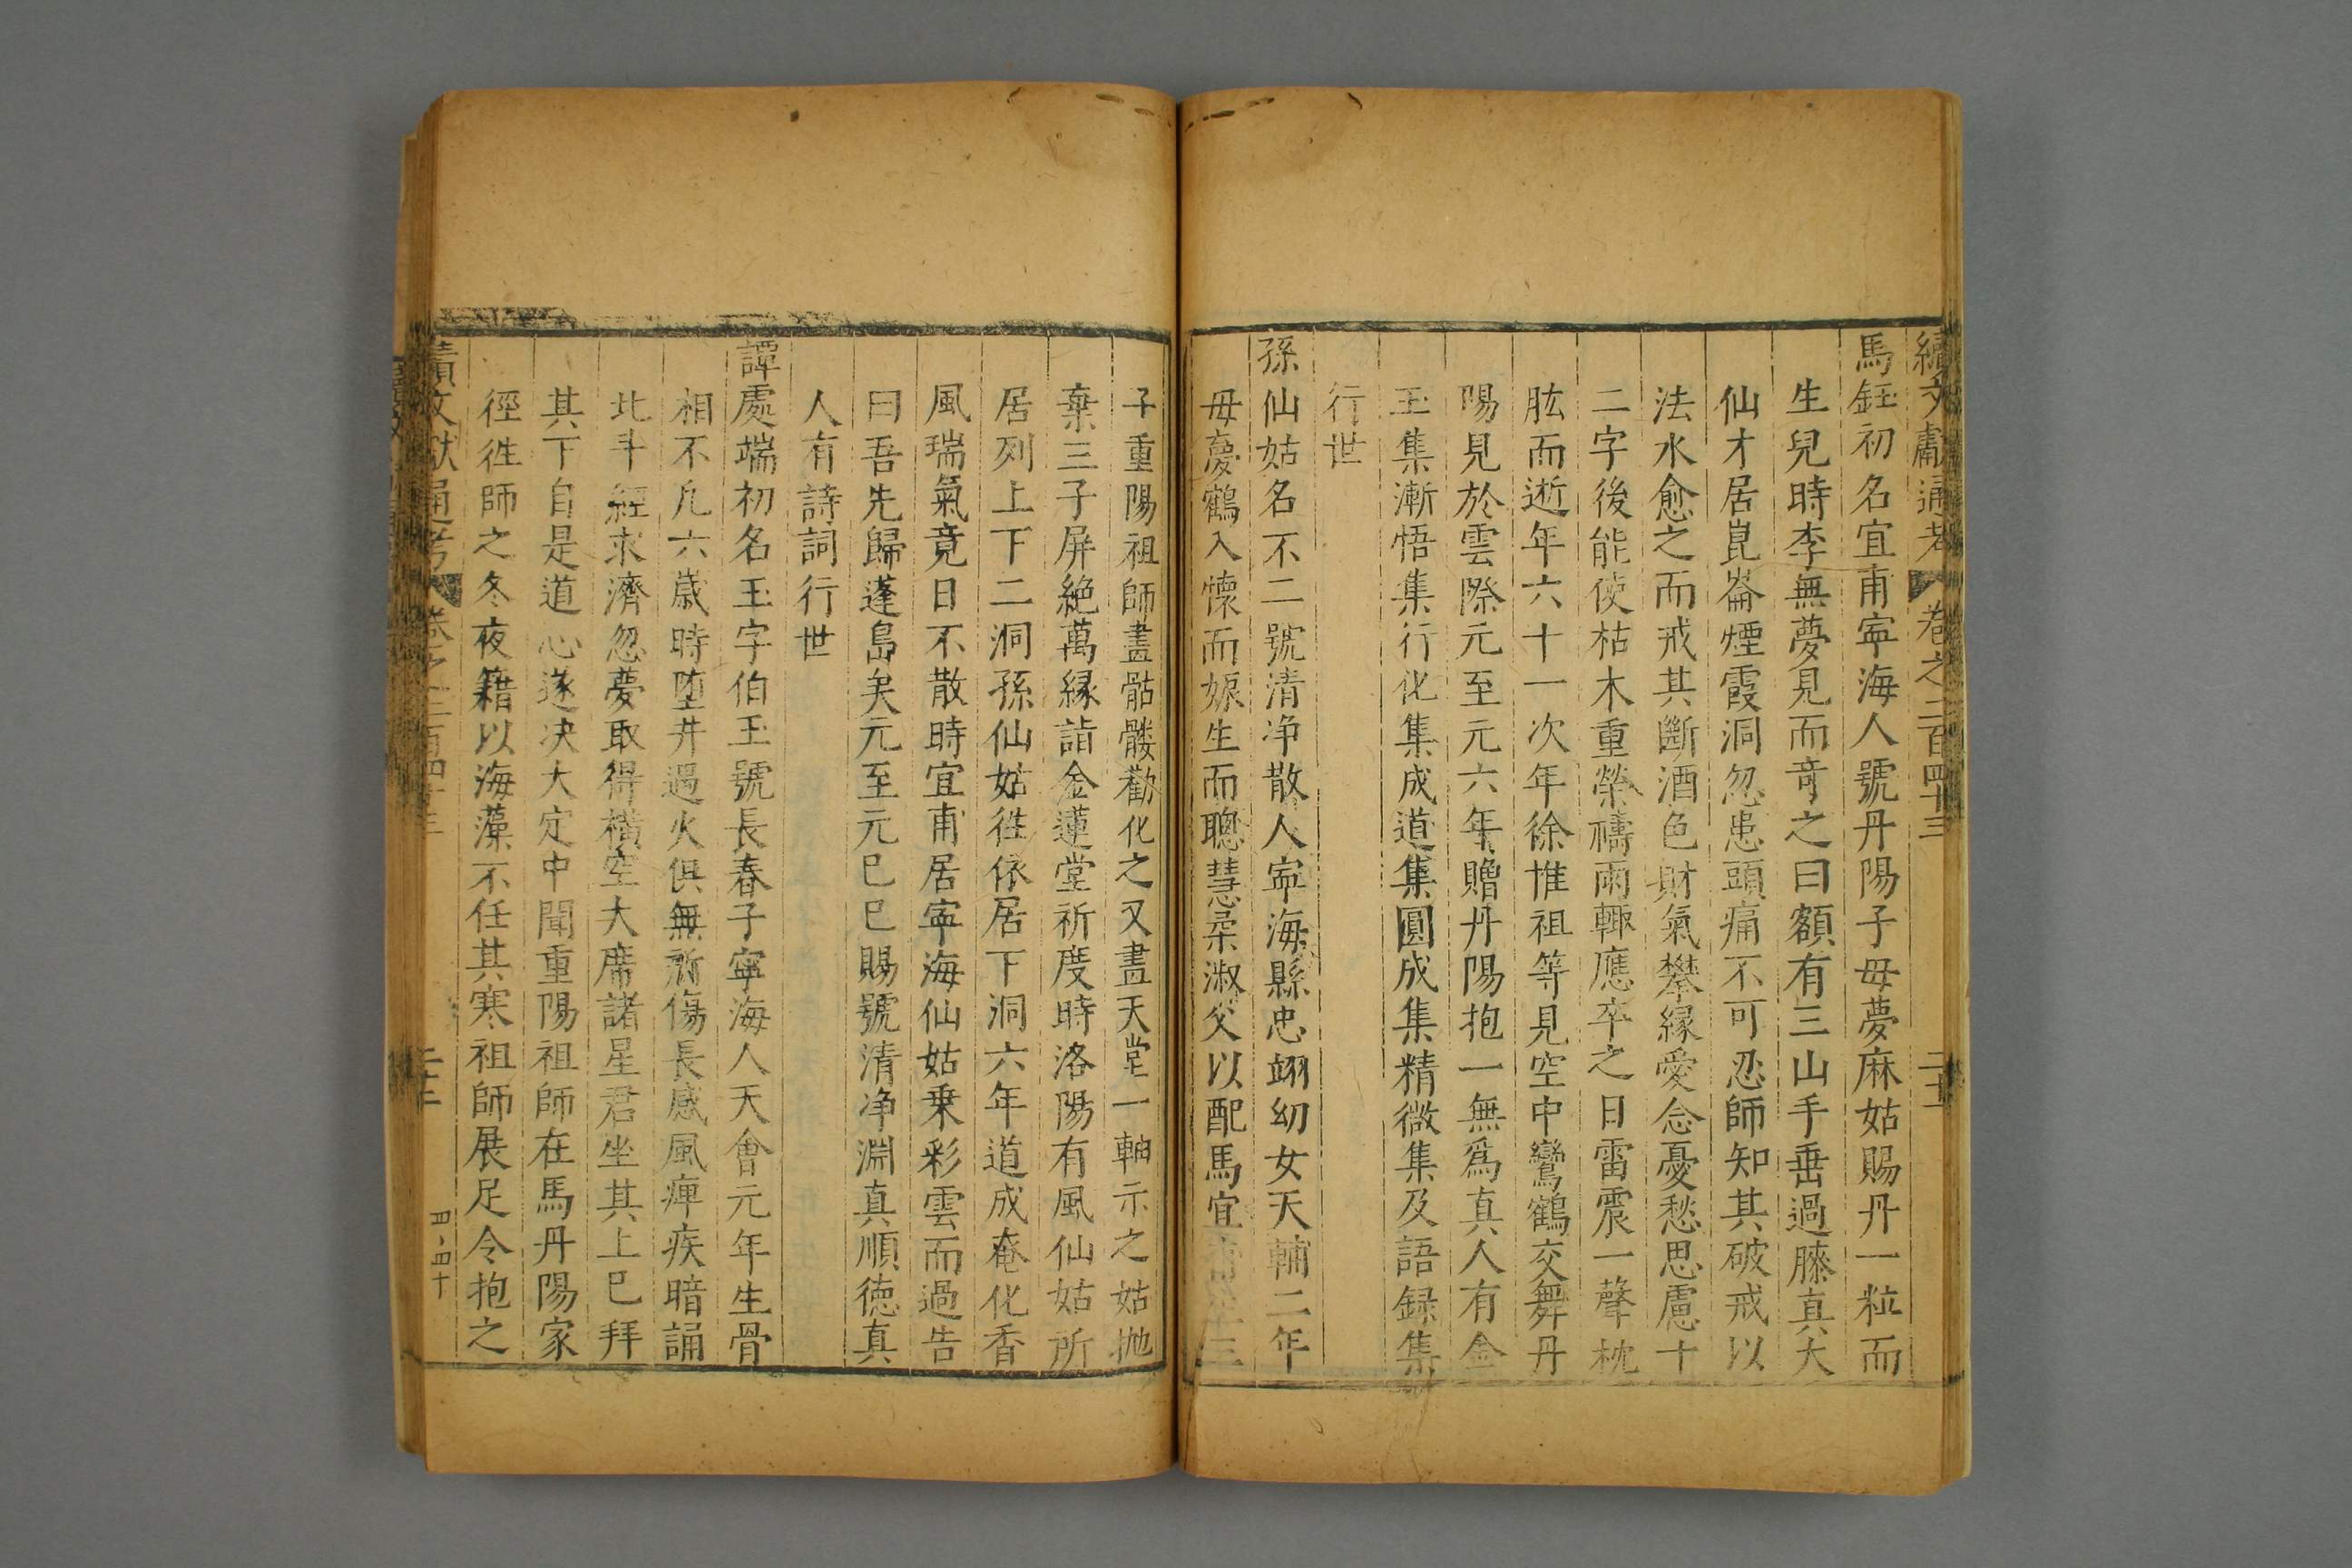 續文獻通考 卷之二百四十三 二十一
馬鈺初名宜甫寧海人號丹陽子母夢麻姑賜丹一粒而
生兒時李無夢見而竒之曰額有三山手垂過膝真大
仙才居崑崙煙霞洞忽患頭痛不可忍師知其破戒以
法水愈之而戒其斷酒色財氣攀緣愛念憂愁思慮十
二字後能使枯木重榮禱雨輙應卒之日雷震一聲枕
肱而逝年六十一次年徐惟祖等見空中鸞鶴交舞丹
陽見於雲際元至元六年贈丹陽抱一無爲真人有金
玉集漸悟集行化集成道集圓成集精微集及語録集
行世
孫仙姑名不二號清净散人寧海縣忠翊幼女天輔二年
毋夢鶴入懷而娠生而聰慧柔淑父以配馬宜三
子重陽祖師畫骷髏勸化之又畫天堂一軸示之姑抛
棄三子屏絶萬緣詣金蓮堂祈度時洛陽有風仙姑所
居列上下二洞孫仙姑徃依居下洞六年道成奄化香
風瑞氣竟日不散時宜甫居寧海仙姑乗彩雲而過告
曰吾先歸蓬島矣元至元己巳賜號清净淵真順徳真
人有詩詞行世
譚處端初名玉字伯玉號長春子寧海人天會元年生骨
相不凡六歲時堕井遇火俱無所傷長感風痺疾暗誦
北斗經求濟忽夢取得横空大席諸星君坐其上已拜
其下自是道心遂决大定中聞重陽祖師在馬丹陽家
徑徃師之冬夜籍以海藻不任其寒祖師展足令抱之
續文獻通考 卷之二百四十三 二十二
四·四十